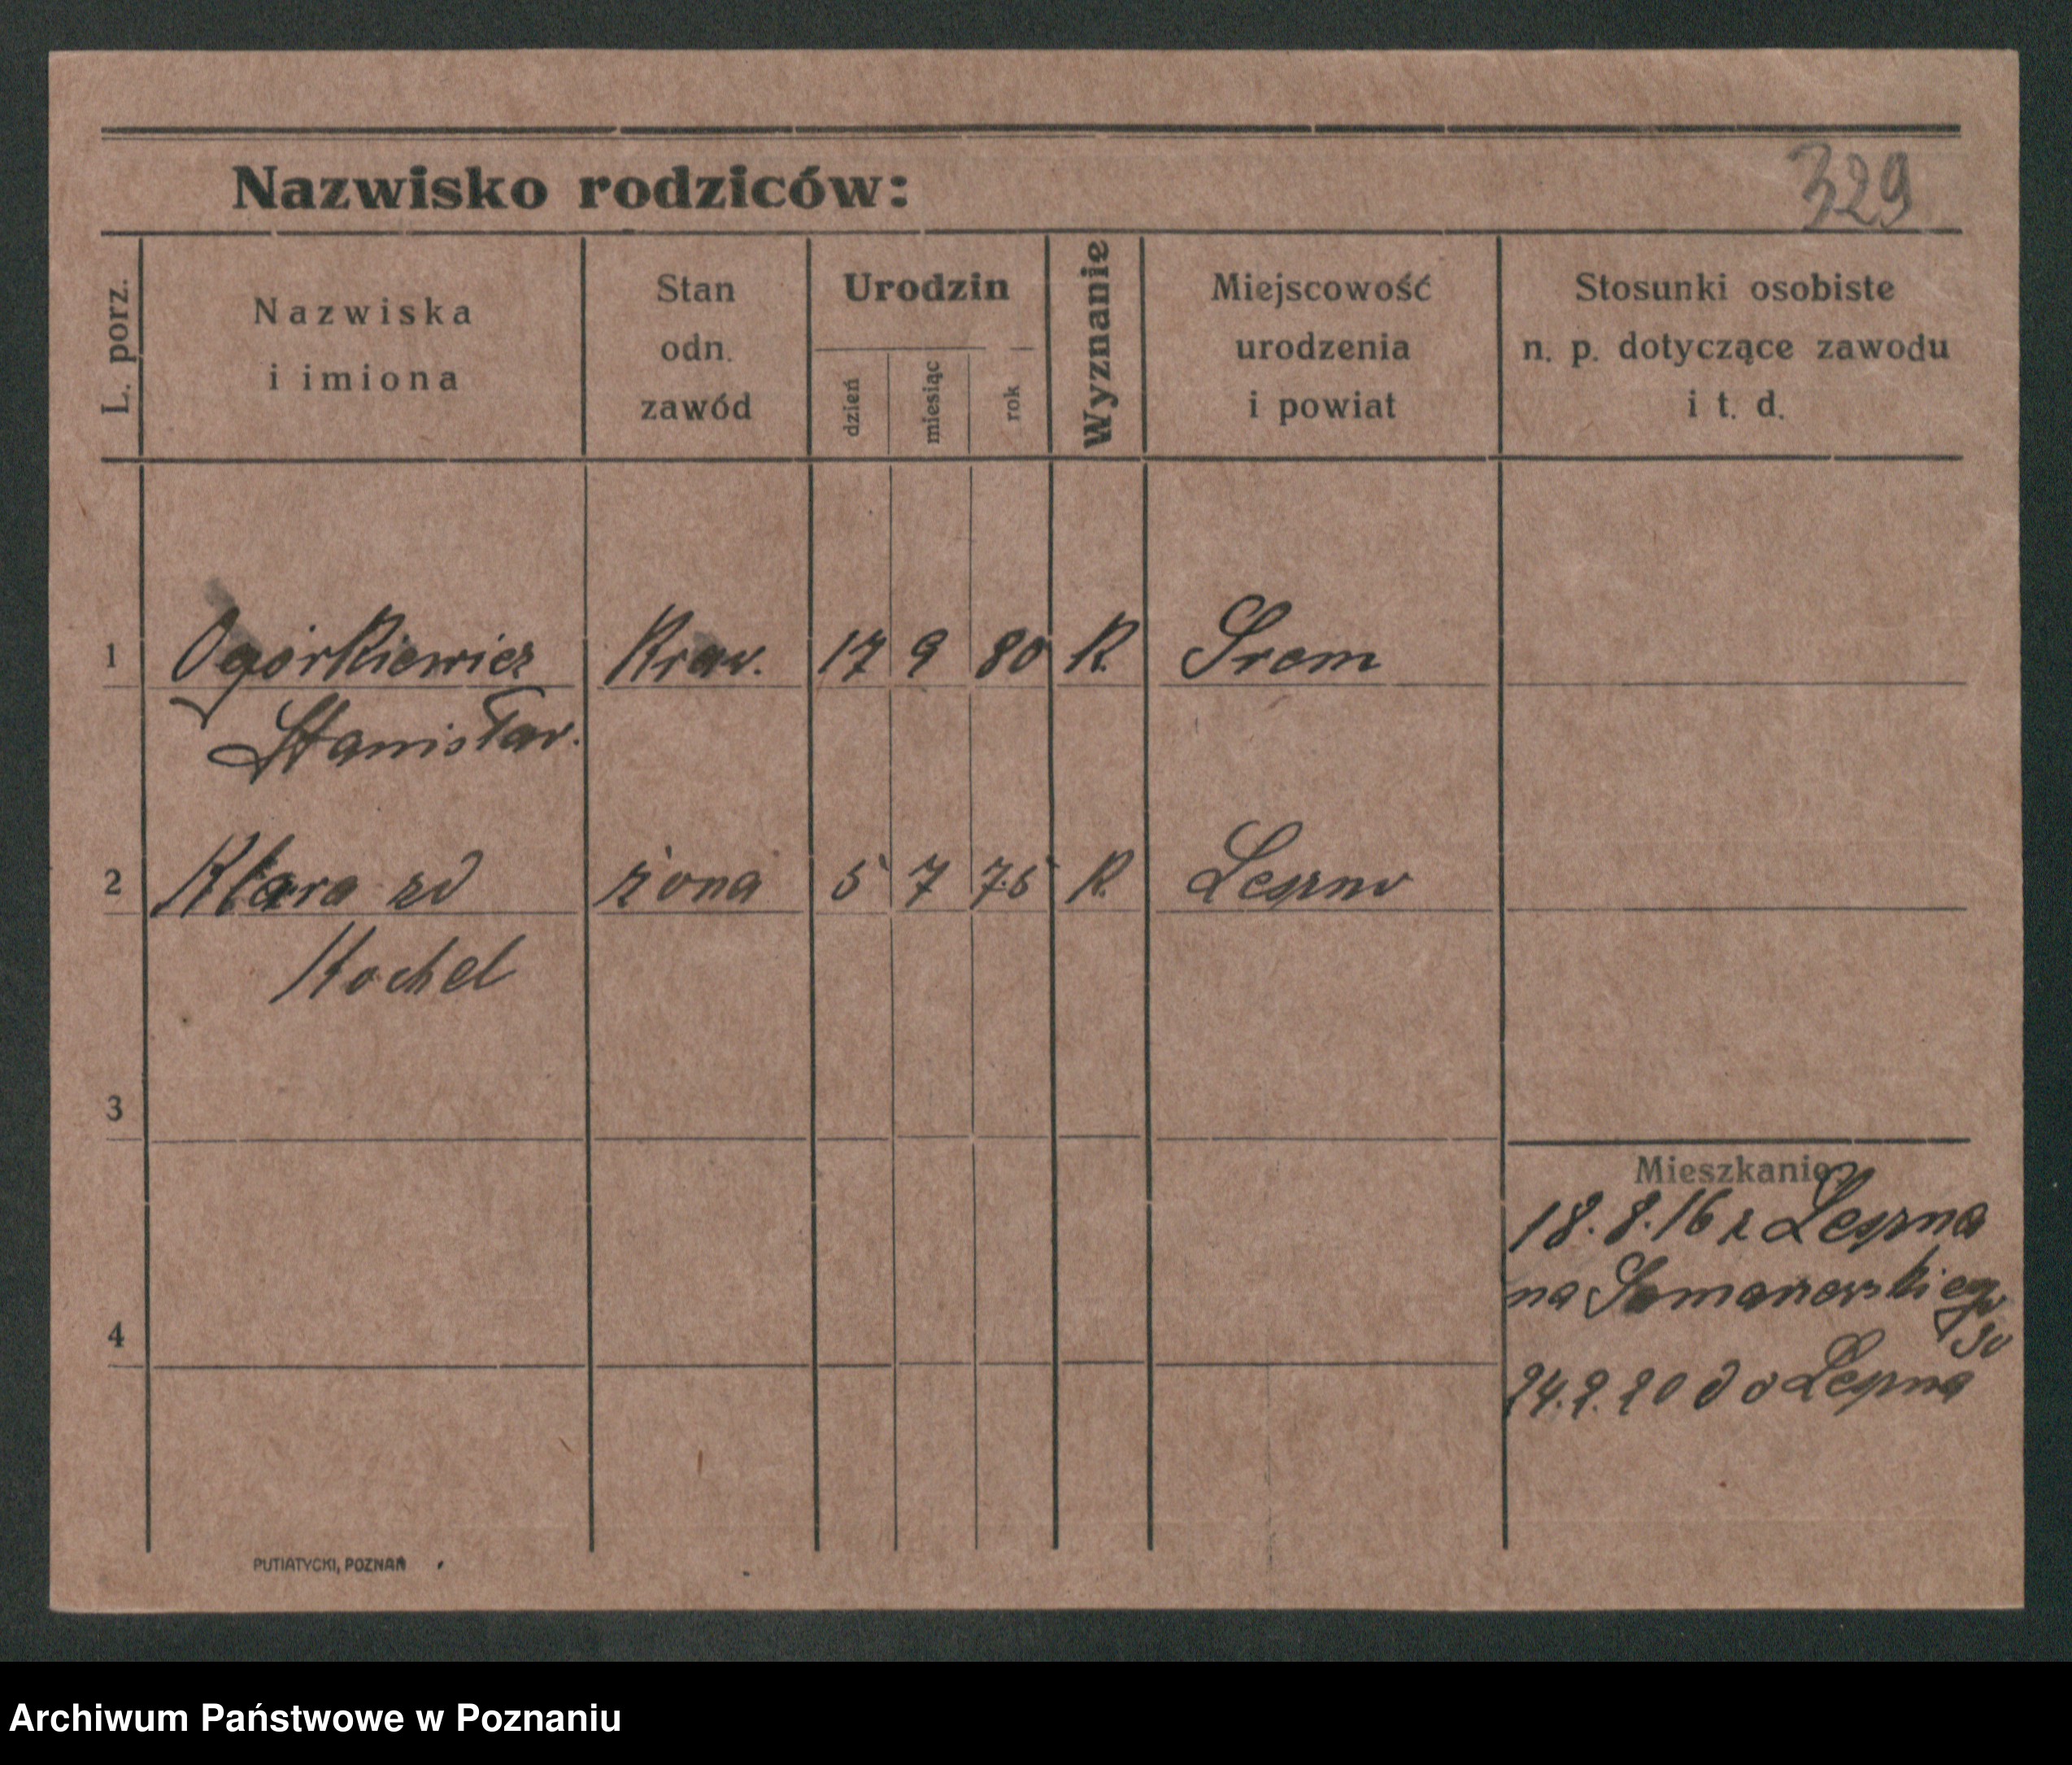 Nazwisko rodziców:
329
L. porz.
Nazwiska
i imiona
Stan
odn.
zawód
Urodzin
dzień
miesiąc
rok
Wyznanie
Miejscowość
urodzenia
i powiat
Stosunki osobiste
n. p. dotyczące zawodu
i t. d.
1 Ogórkiewicz Kraw. 17 9 80 K. Srem
Stanisław.
2 Klara zd żona 5 7 75 K. Leszno
Kochel
3
Mieszkanie:
18.8.16 z Leszna
na
4
30
24.2.20 do Leszna
PUTIATYCKI, POZNAŃ
Archiwum Państwowe w Poznaniu